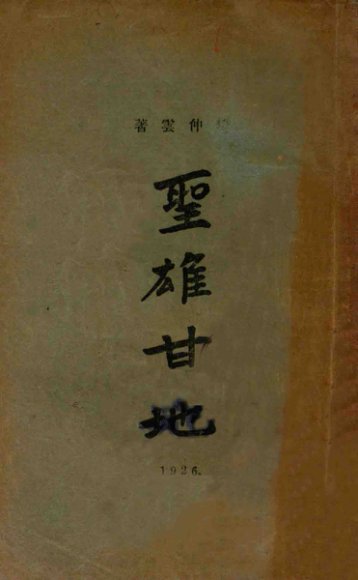 仲雲著
聖雄甘地
1926.